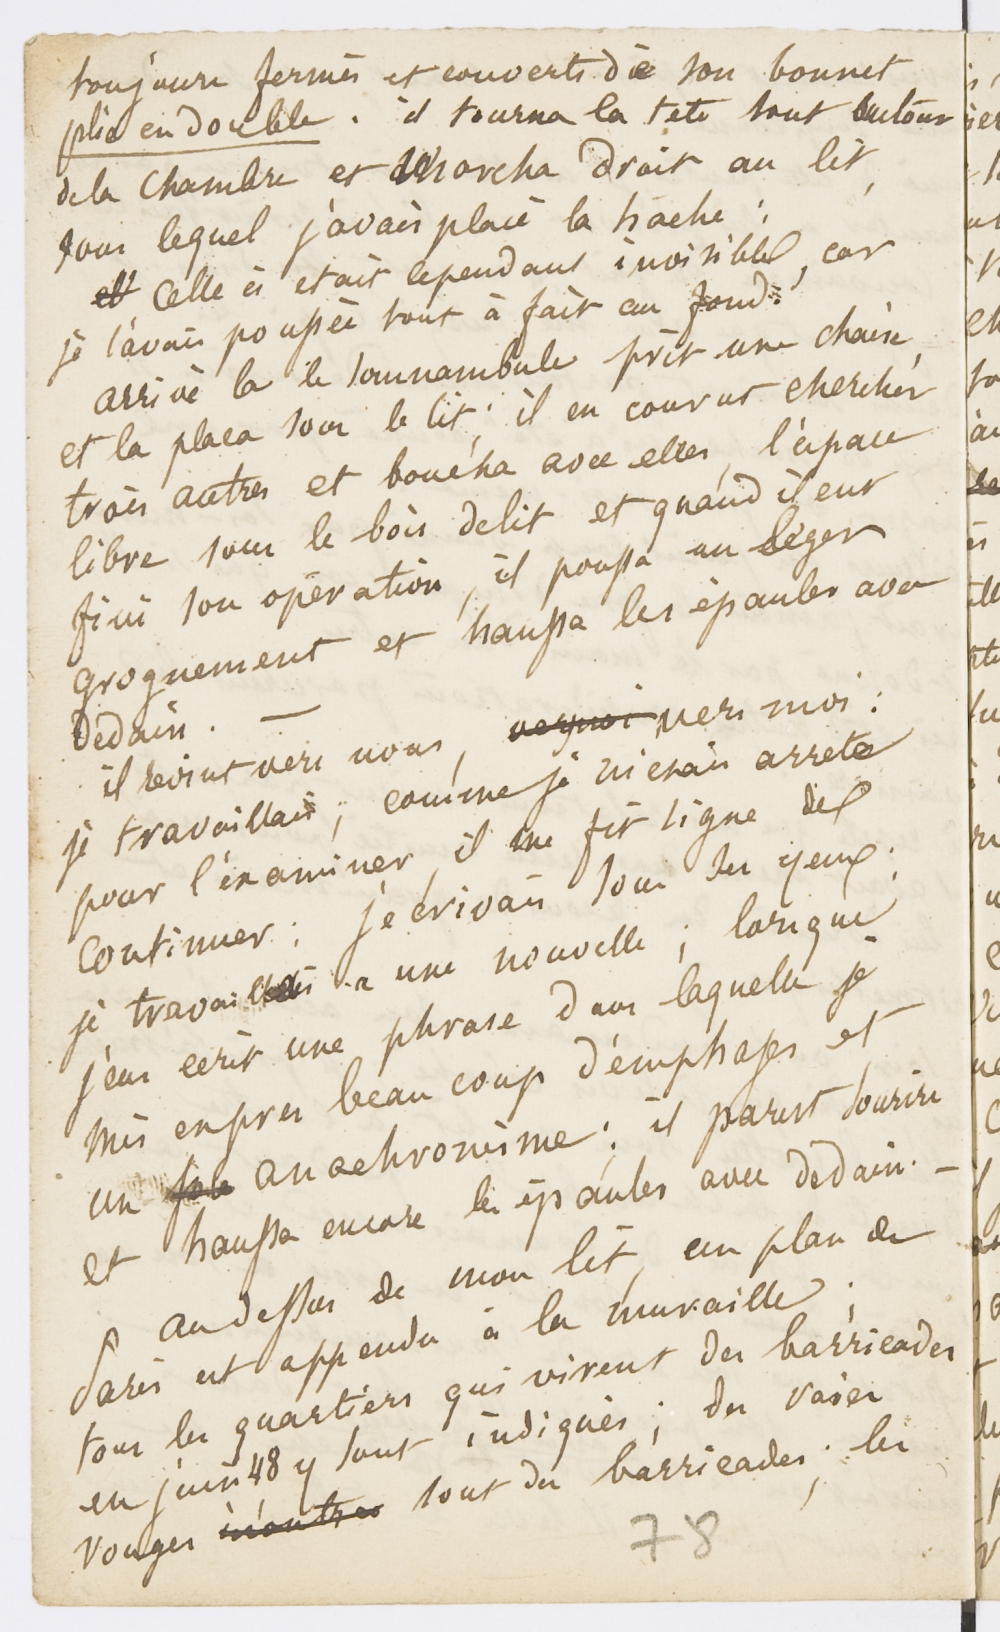 toujours fermés et couverts de son bonnet
plié en double. il tourna la tete tout autour
de la chambre et marcha droit au lit,
sous lequel j'avais placé la hache ;
et celle ci etait cependant invisible, car
je l'avais poussée tout à fait au fond.
arrivé la le somnambule prit une chaise,
et la placa sous le lit ; il en courut chercher
trois autres et boucha avec elles, l'espace
libre sous le bois de lit et quand il eut
fini son opération, il poussa un léger
grognement et haussa les épaules avec
dedain. —
il revint vers nous, vers moi :
je travaillais ; comme je m'etais arreté
pour l'examiner, il me fit signe de
continuer ; j'ecrivais sous ses yeux ;
je travaillais a une nouvelle ; lorsque
j'eus ecrit une phrase dans laquelle je
mis expres beaucoup d'emphases et
un anachronisme ; il parut sourire
et haussa encore les épaules avec dedain. —
au dessus de mon lit, un plan de
Paris est appendu à la muraille ;
tous les quartiers qui virent des barricades
en juin 48 y sont indiqués ; des raies
rouges sont des barricades ; les
78